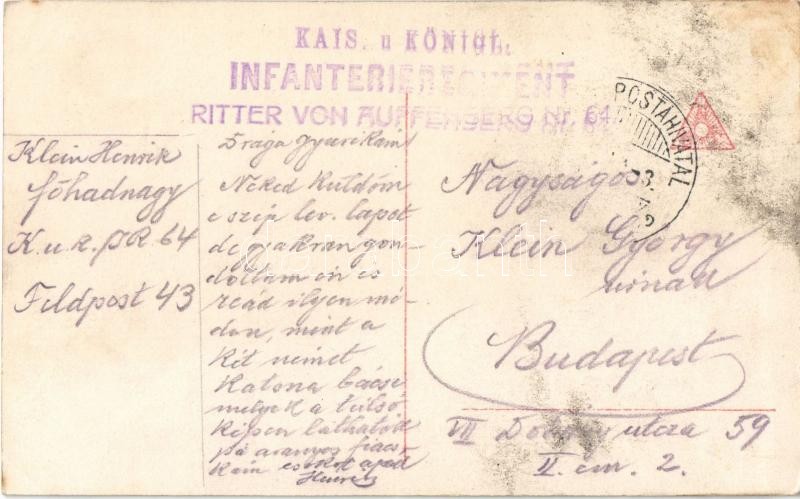 KAIS. u KÖNIGL.
INFANTERIEREGIMENT
RITTER VON AUFFENBERG Nr. 64.
POSTAHIVATAL
Klein Henrik
főhadnagy
K.u.k. IR 64
Feldpost 43
Drága gyurikám
Neked küldöm
e szép lev. lapot
de gyakran gon-
doltam én is
reád ilyen mó-
don, mint a
két német
katona bácsi
melyek a túlsó
képen láthatók
pá aranyos fiacs-
kám csókol apád
Henrik
Nagyságos
Klein György
úrnak
Budapest
VII utcza 59
II. em. 2.